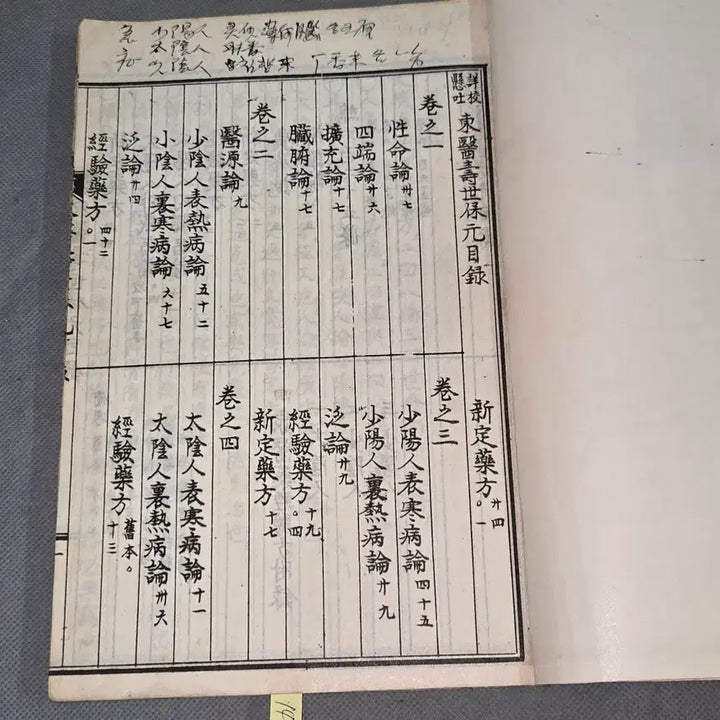 少陽人
太陰人
少陰人
詳校懸吐 東醫壽世保元目録
卷之一
性命論 卅七
四端論 廿六
擴充論 十七
臟腑論 十七
卷之二
醫源論 九
少陰人表熱病論 五十二
小陰人裏寒病論 六十七
泛論 廿四
經驗藥方 四十二。一
新定藥方 廿四。一
卷之三
少陽人表寒病論 四十五
少陽人裏熱病論 廿九
泛論 廿九
經驗藥方 十九。四
新定藥方 十七
卷之四
太陰人表寒病論 十一
太陰人裏熱病論 卅六
經驗藥方 舊本。十三